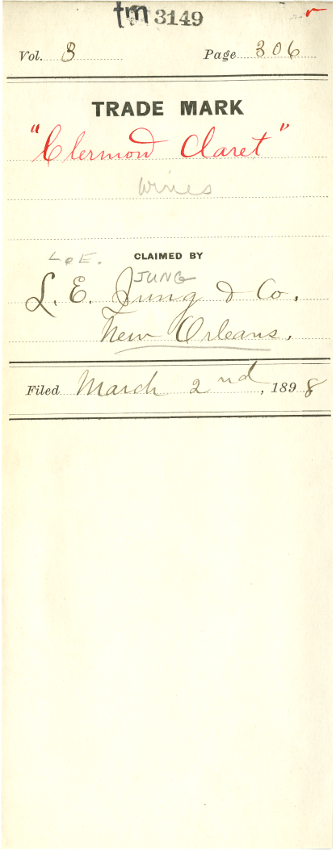 tm 3149
Vol. 3 Page 306
TRADE MARK
"Clermond Claret"
Wines
L & E.
CLAIMED BY
JUNG
L. E. Jung & Co.
New Orleans.
Filed March 2nd, 1898